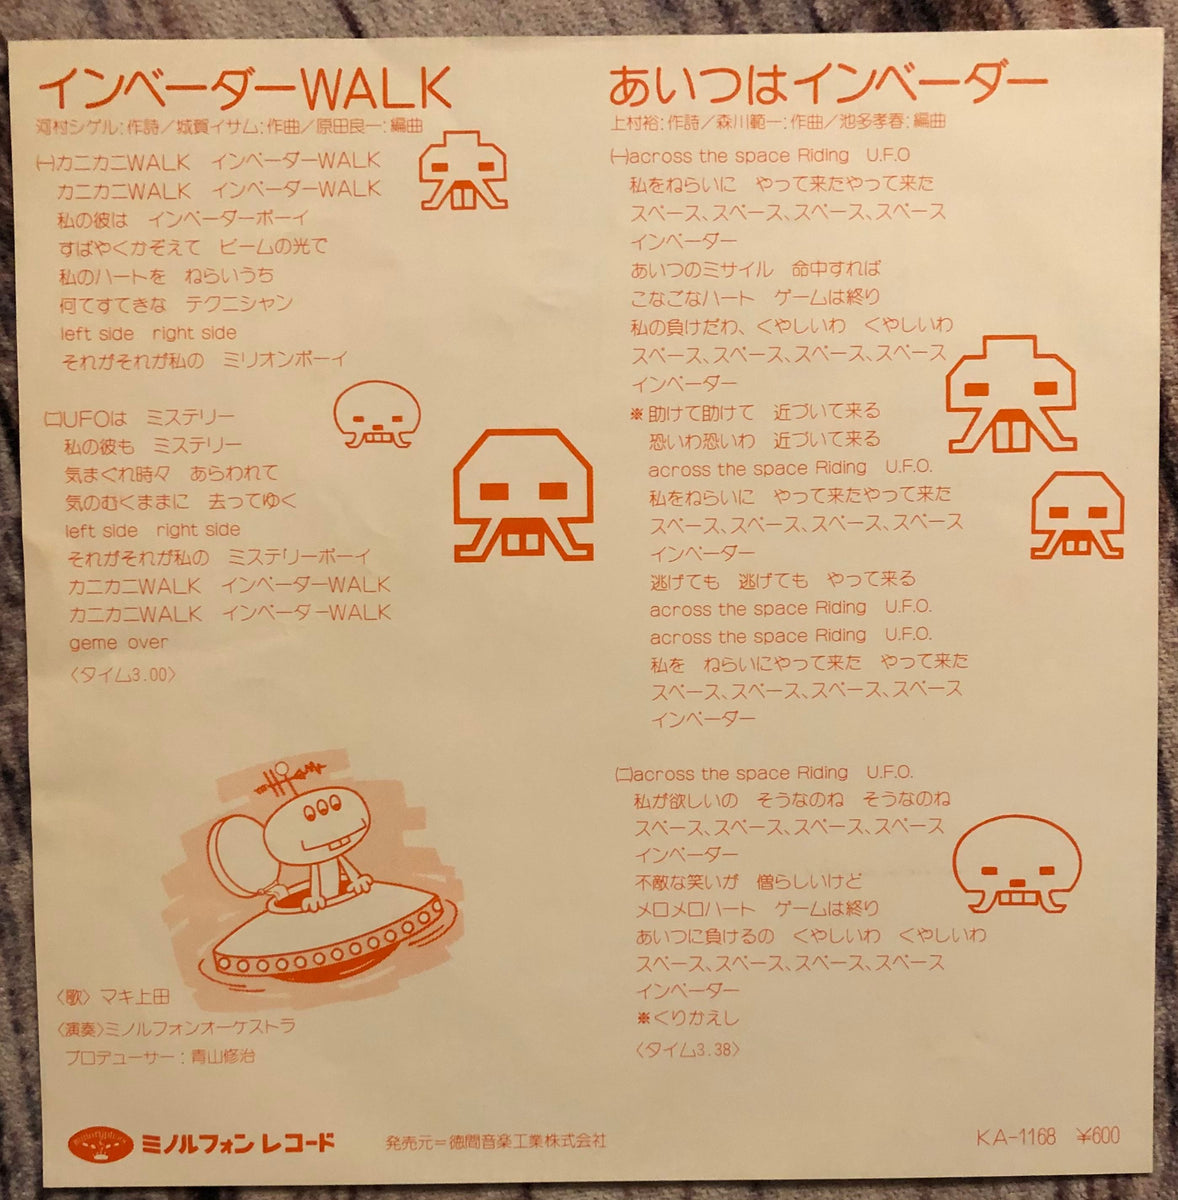 インベーダーWALK
河村シゲル:作詩/城賀イサム:作曲/原田良一:編曲
㈠カニカニWALK インベーダーWALK
カニカニWALK インベーダーWALK
私の彼は インベーダーボーイ
すばやくかぞえて ビームの光で
私のハートを ねらいうち
何てすてきな テクニシャン
left side right side
それがそれが私の ミリオンボーイ
㈡UFOは ミステリー
私の彼も ミステリー
気まぐれ時々 あらわれて
気のむくままに 去ってゆく
left side right side
それがそれが私の ミステリーボーイ
カニカニWALK インベーダーWALK
カニカニWALK インベーダーWALK
geme over
〈タイム3.00〉
〈歌〉マキ上田
〈演奏〉ミノルフォンオーケストラ
プロデューサー:青山修治
あいつはインベーダー
上村裕:作詩/森川範一:作曲/池多孝春:編曲
㈠across the space Riding U.F.O
私をねらいに やって来たやって来た
スペース、スペース、スペース、スペース
インベーダー
あいつのミサイル 命中すれば
こなごなハート ゲームは終り
私の負けだわ、くやしいわ くやしいわ
スペース、スペース、スペース、スペース
インベーダー
※助けて助けて 近づいて来る
恐いわ恐いわ 近づいて来る
across the space Riding U.F.O.
私をねらいに やって来たやって来た
スペース、スペース、スペース、スペース
インベーダー
逃げても 逃げても やって来る
across the space Riding U.F.O.
across the space Riding U.F.O.
私を ねらいにやって来た やって来た
スペース、スペース、スペース、スペース
インベーダー
㈡across the space Riding U.F.O.
私が欲しいの そうなのね そうなのね
スペース、スペース、スペース、スペース
インベーダー
不敵な笑いが 僧らしいけど
メロメロハート ゲームは終り
あいつに負けるの くやしいわ くやしいわ
スペース、スペース、スペース、スペース
インベーダー
※くりかえし
〈タイム3.38〉
minoruphone
ミノルフォン レコード
発売元=徳間音楽工業株式会社
KA-1168 ¥600